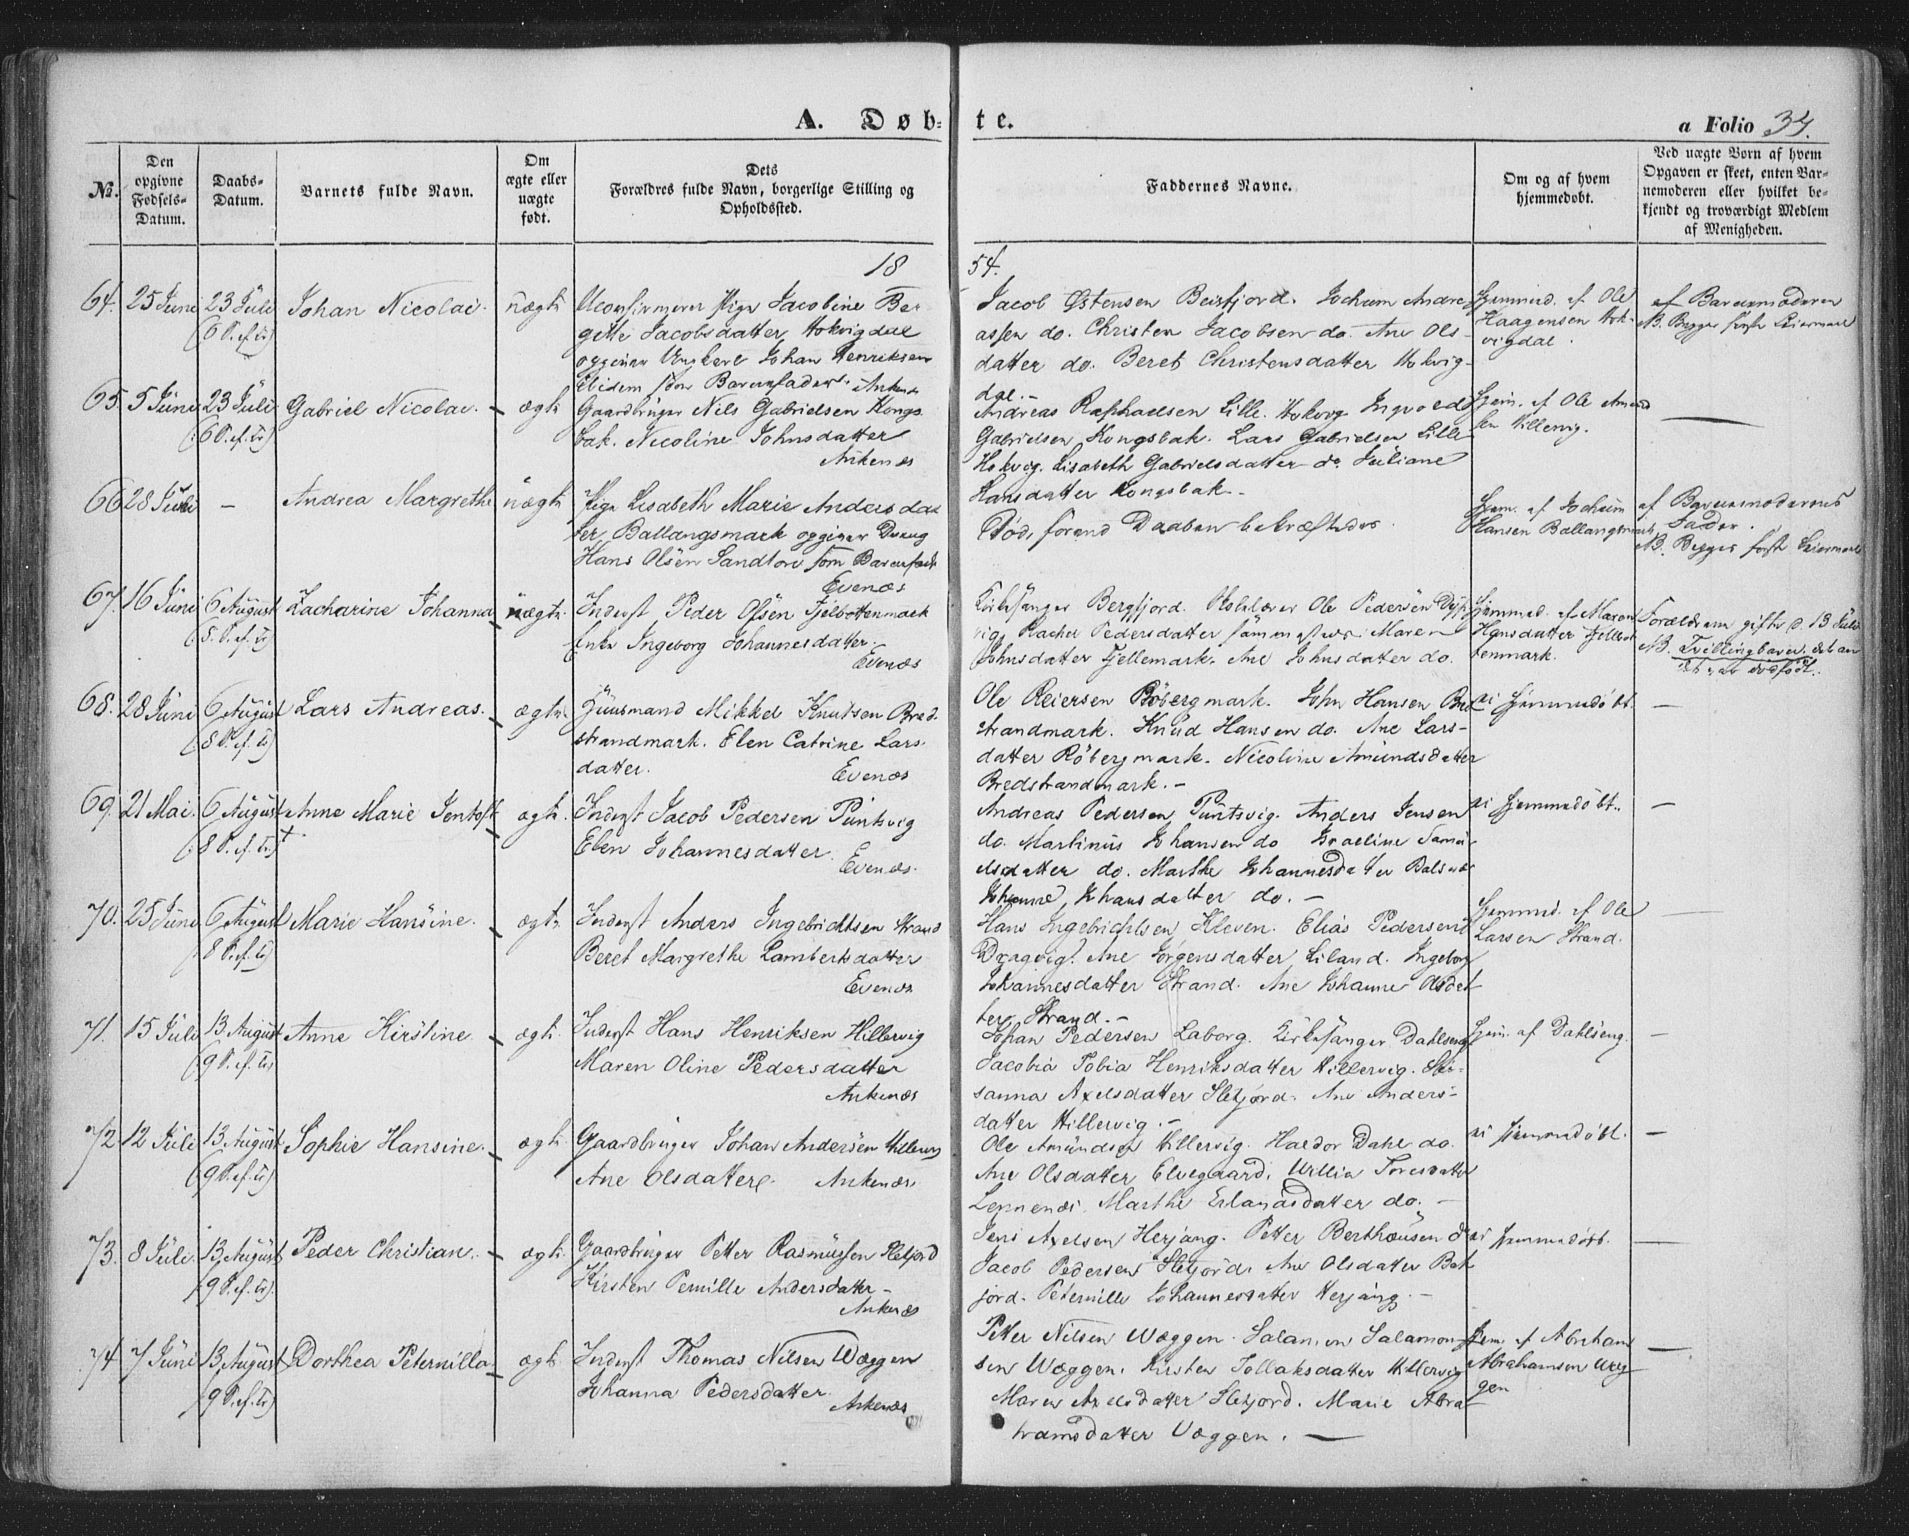 A. Døb-
te.
a Folio 34.
No.
Den opgivne Fødsels-Datum.
Daabs-Datum.
Barnets fulde Navn.
Om ægte eller uægte født.
Dets Forældres fulde Navn, borgerlige Stilling og Opholdssted.
Faddernes Navne.
Om og af hvem hjemmedøbt.
Ved uægte Børn af hvem Opgaven er skeet, enten Barnemoderen eller hvilket bekjendt og troværdigt Medlem af Menigheden.
1854.
64. 25 Juni 23 Juli Johan Nicolai. uægte
(6 S. ef. Tr)
Uconfirmeret Pige Jacobine Ber-
gitte Jacobsdatter Hokvigdal
opgiver Ungkarl Johan Henriksen
ibidem som Barnefader. Ankenæs
Jacob Østensen Beisfjord. Jochum Andre-
assen do. Christen Jacobsen do. Ane Ols-
datter do. Beret Christensdatter Hokvig-
dal. -
Hjemmed. af Ole
Haagensen Hok-
vigdal.
af Barnemoderen
NB. Begges første Leiermaal
65. 5 Juni 23 Juli Gabriel Nicolai. - ægte
(6 S. ef. Tr)
Gaardbruger Nils Gabrielsen Kongs-
bak. Nicoline Johnsdatter
Ankenæs
Andreas Raphaelsen Lille Hokvig. Ingvold
Gabrielsen Kongsbak. Lars Gabrielsen Lille
Hokvig. Lisabeth Gabrielsdatter do. Juliane
Hansdatter Kongsbak -
Hjem. af Ole Amund
sen Hillervig.
66 28 Juni - Andrea Margrethe uægte
Pige Lisabeth Marie Andersdat
ter Ballangsmark opgiver Dreng
Hans Olsen Sandtorv som Barnefader
Evenæs
Død, forend Daaben bekræftedes.
Hjem. af Jochum
Hansen Ballangsmark
af Barnemoderens
Fader.
NB. Begges første Leiermaal
67. 16 Juni 6 August Zacharine Johanna uægte.
(8 S. ef. Tr)
Inderst Peder Olsen Fjelbottenmark
Enke Ingeborg Johannesdatter.
Evenæs
Kirkesanger Bergfjord. Skolelærer Ole Pedersen Dyp
vig. Rachel Pedersdatter sammesteds. Maren
Johnsdatter Fjellemark. Ane Johnsdatter do.
Hjemmed. af Maren
Hansdatter Fjelbot
tenmark.
Forældrene gifte d. 13 Juli
NB. Tvillingbarn, det an
det var dødfødt.
68. 28 Juni 6 August Lars Andreas. - ægte.
(8 S. ef. Tr)
Huusmand Mikkel Knutsen Bred-
strandmark. Elen Catrine Lars-
datter. Evenæs
Ole Reiersen Røbergmark. John Hansen Bred
strandmark. Knud Hansen do. Ane Lars-
datter Røbergmark. Nicoline Amundsdatter
Bredstrandmark. -
ei hjemmedøbt. -
69. 21 Mai. 6 August Anne Marie Jentoft ægte.
(8 S. ef. Tr)
Inderst Jacob Pedersen Puntsvig
Elen Johannesdatter.
Evenæs.
Andreas Pedersen Puntsvig. Anders Jensen
do. Martinus Johansen do Israeline Samu-
elsdatter do. Marthe Johannesdatter Balsnæs
Johanne Johansdatter do. -
ei hjemmedøbt. -
70. 25 Juni 6 August Marie Hansine. - ægte.
(8 S. ef. Tr)
Inderst Anders Ingebrichtsen Strand
Beret Margrethe Lambertsdatter
Evenæs
Hans Ingebrichtsen Kleven. Elias Pedersen
Dragvig. Ane Jørgensdatter Liland. Ingeborg
Johannesdatter Strand. Ane Johanne Olsdat
ter Strand. -
Hjemmed. af Ole
Larsen Strand.
71. 15 Juli 13 August Anne Kirstine - ægte.
(9 S. ef. Tr)
Inderst Hans Henriksen Hillervig
Maren Oline Pedersdatter
Ankenæs
Johan Pedersen Laborg. Kirkesanger Dahlseng
Jacobia Tobia Henriksdatter Hillervig. Su-
sanna Axelsdatter Sletjord. Ane Anders-
datter Hillervig. -
Hjem. af Dahlseng. -
72 12 Juli 13 August Sophie Hansine. - ægte.
(9 S. ef. Tr)
Gaardbruger Johan Andersen Hillervig
Ane Olsdatter. Ankenæs
Ole Amundsen Hillervig. Haldor Dahl do.
Ane Olsdatter Elvegaard. Uxllia Toresdatter
Lennenæs. Marthe Erlandsdatter do. -
ei hjemmedøbt. -
73. 8 Juli. 13 August Peder Christian. - ægte.
(9 S. ef. Tr).
Gaardbruger Petter Rasmussen Sletjord
Kirsten Pernille Andersdatter -
Ankenæs
Jens Axelsen Herjang. Petter Bertheusen do
Jacob Pedersen Sletjord. Ane Olsdatter Bak
jord. Peternille Johannesdatter Herjang. -
ei hjemmedøbt. -
74. 7 Juni 13 August Dorthea Peternilla - ægte.
(9 S. ef. Tr)
Inderst Thomas Nilsen Wæggen
Johanna Pedersdatter.
Ankenæs
Petter Nilsen Wæggen. Salamon Salamon-
sen Wæggen. Kirsten Tollaksdatter Hillervig
Maren Axelsdatter Sletjord. Marie Abra-
hamsdatter Væggen. -
Hjem. af Abraham
Abrahamsen Wæg
gen -